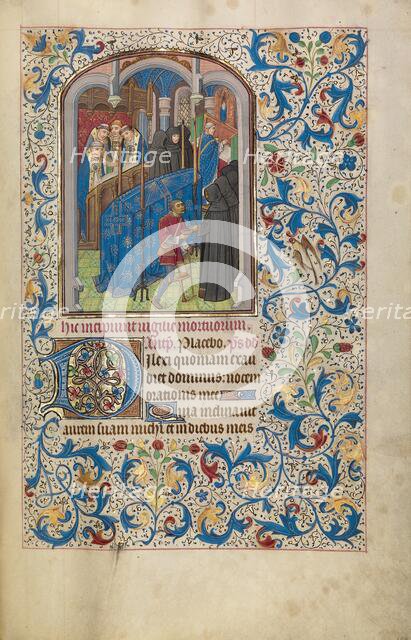 Heritage Heritage Heritage
Images Images Images
Hic incipiunt vigilie mortuorum.
Placebo.
Dilexi quoniam exau
diet dominus: vocem
orationis mee
Quia inclinavit
aurem suam michi et in diebus meis